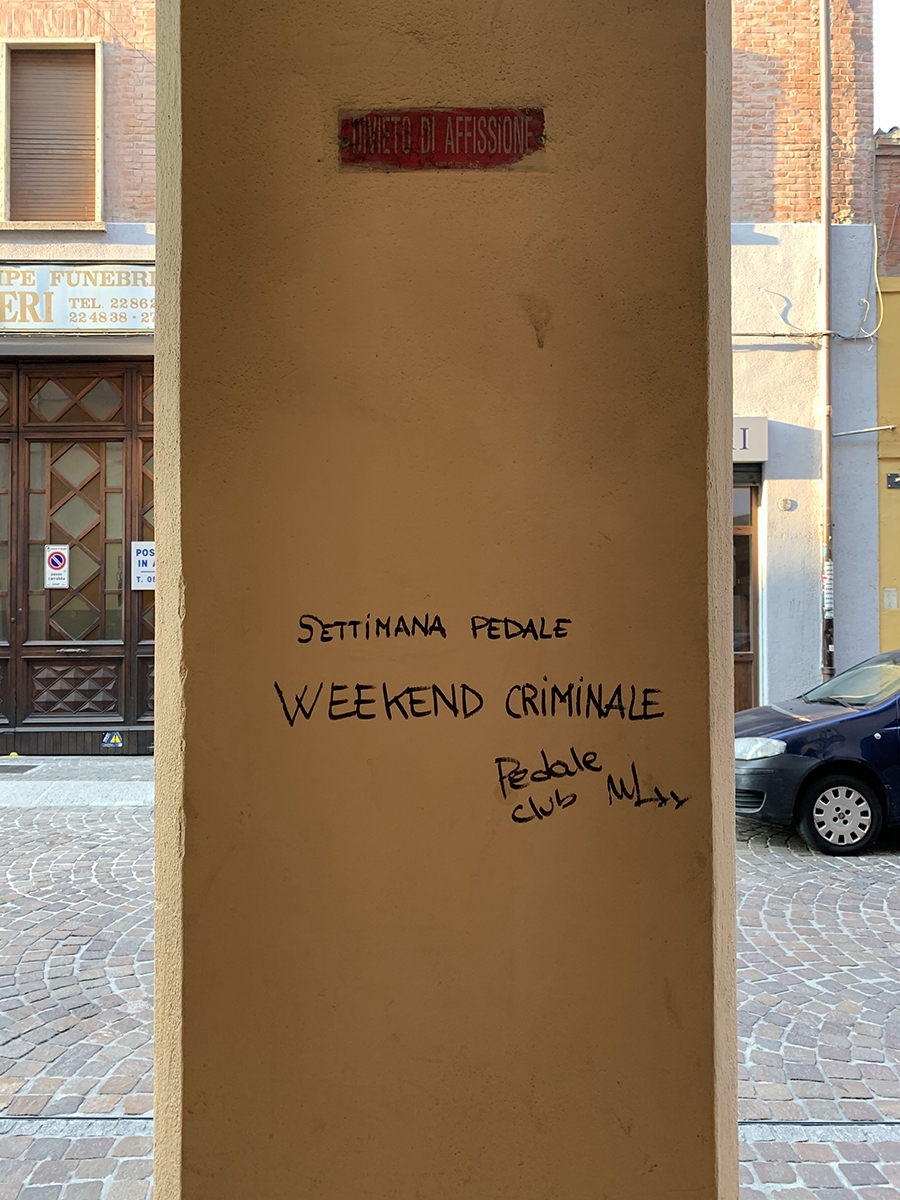 DIVIETO DI AFFISSIONE
IPE FUNEBRI
ERI
TEL. 22862
224838 - 27
POS
IN A
T. 05
passo
carrabile
I
SETTIMANA PEDALE
WEEKEND CRIMINALE
Pedale
club